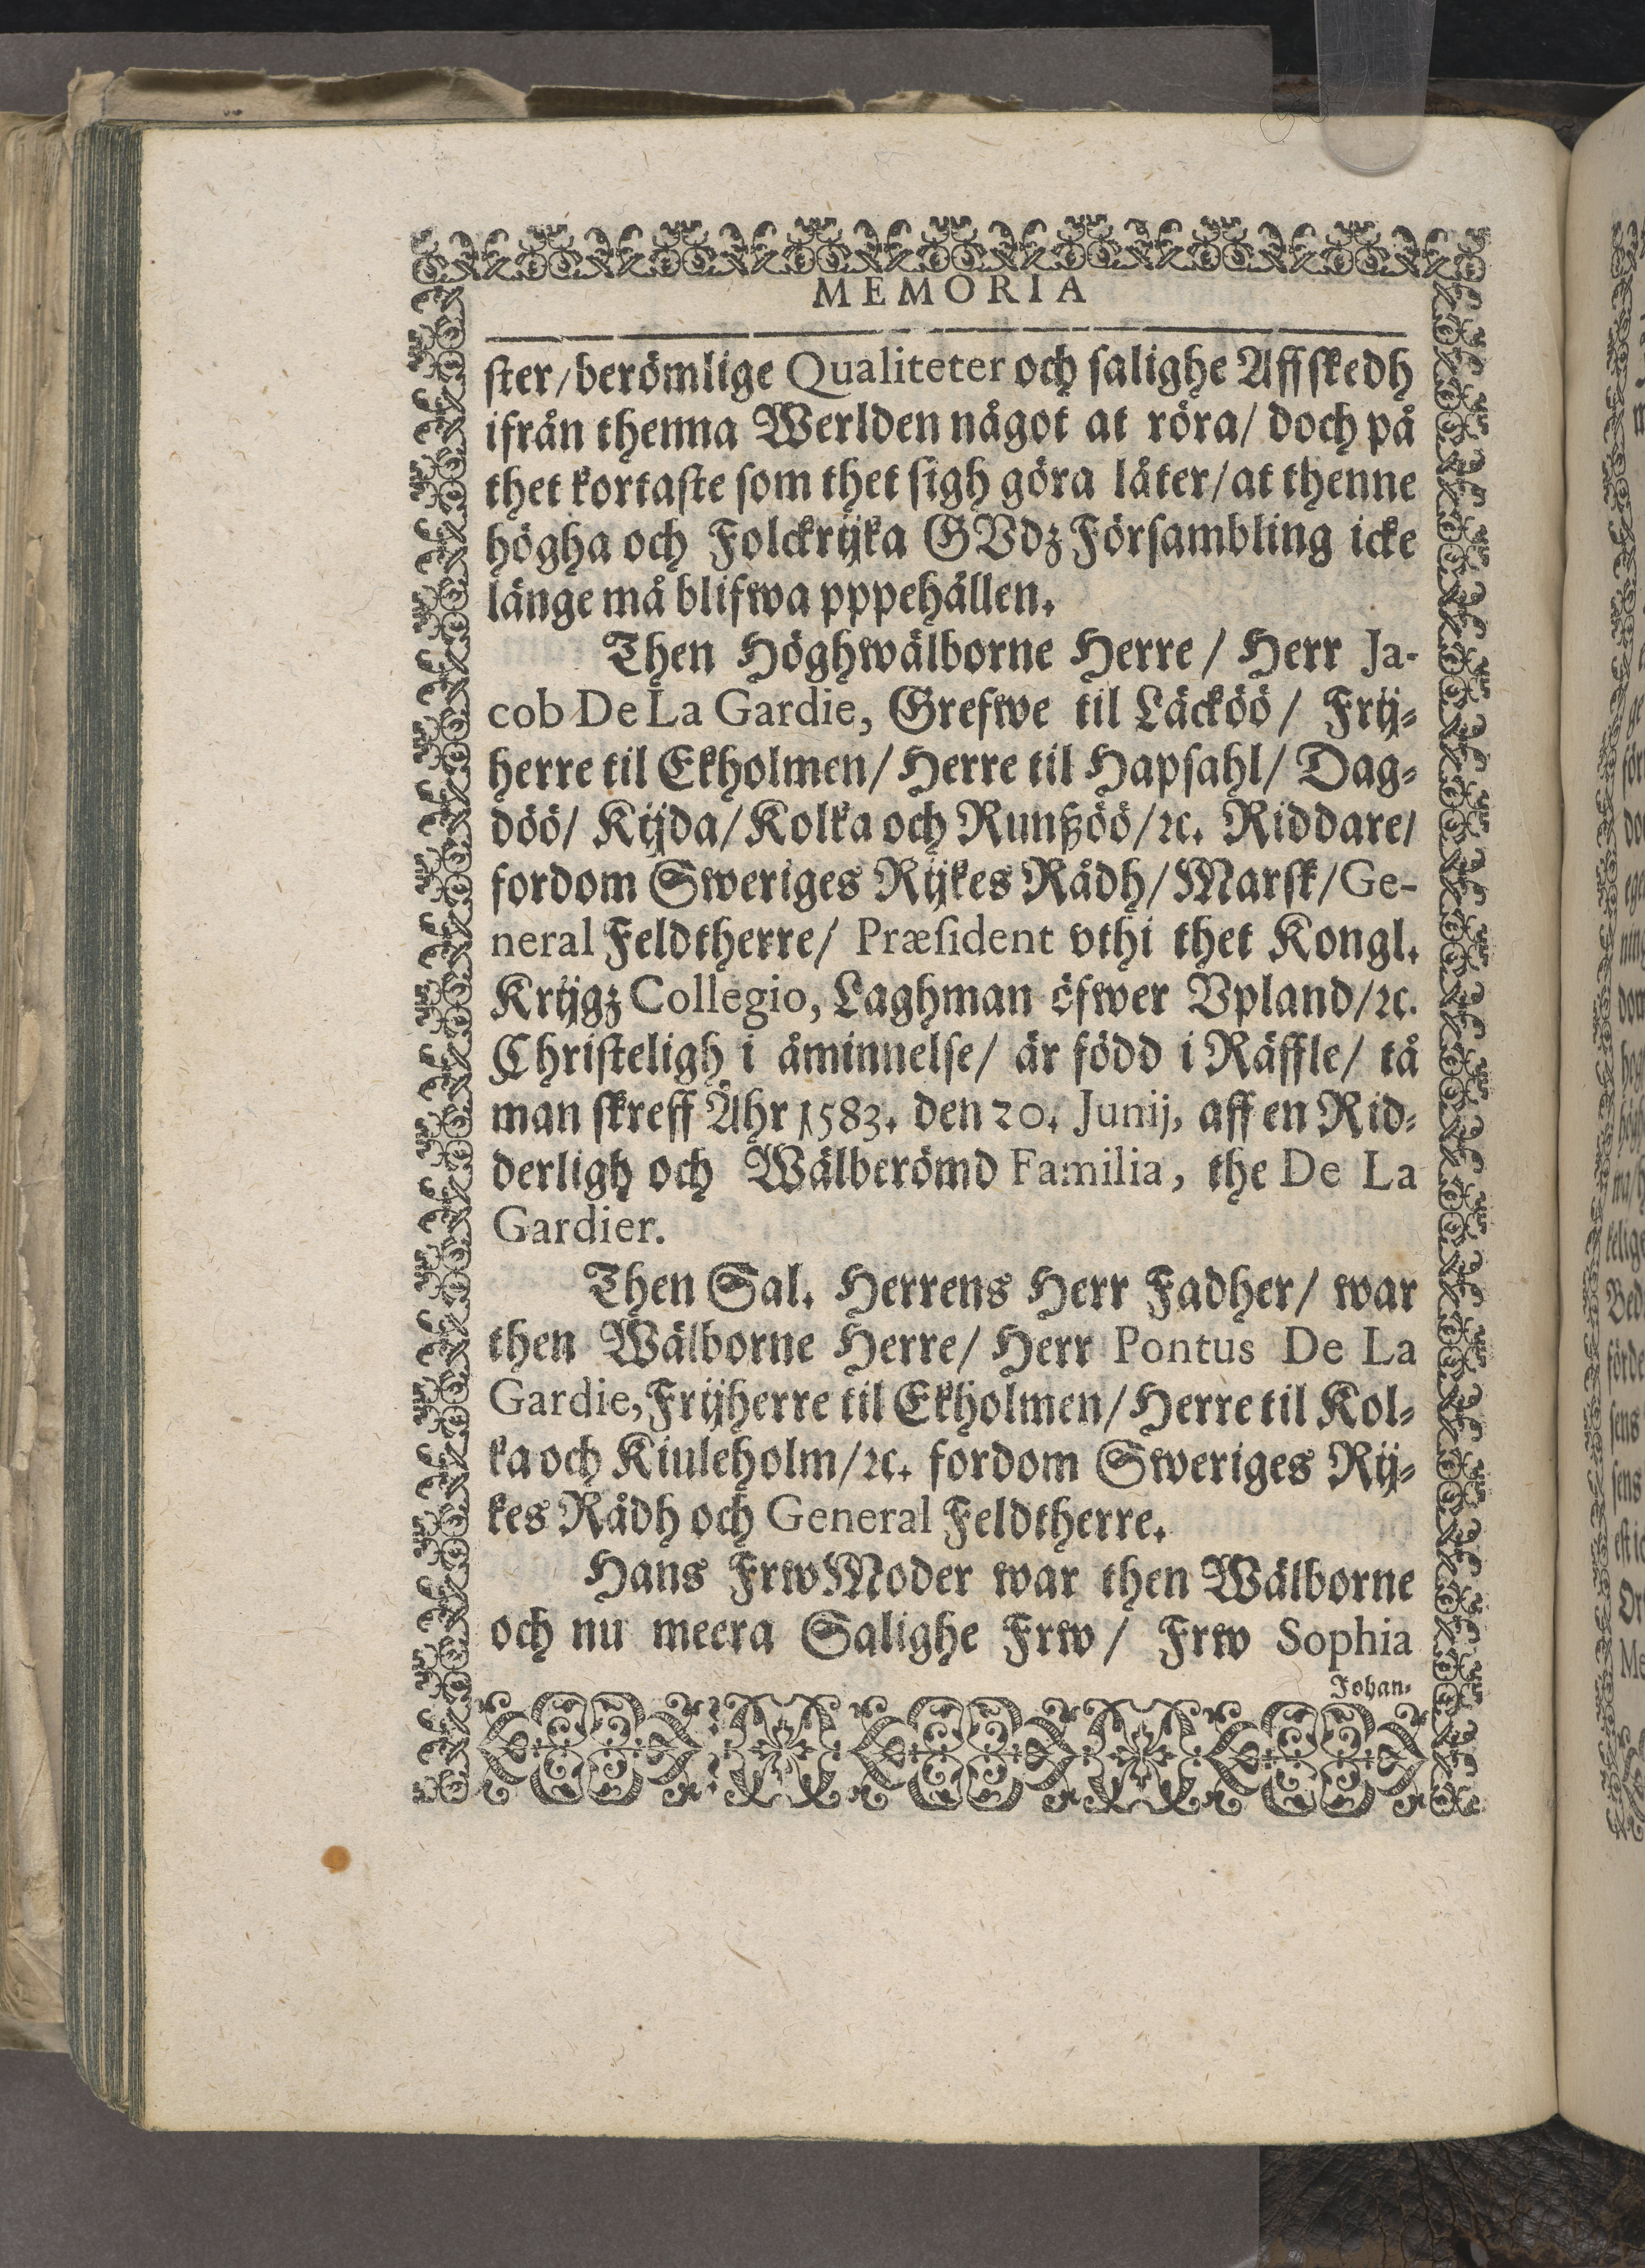 MEMORIA
ster/berömlige Qualiteter och salighe Affskedh
ifrån thenna Werlden något at röra/ doch på
thet kortaste som thet sigh göra låter/at thenne
högha och Folckrijka GVdz Försambling icke
länge må blifwa pppehållen.
Then Höghwälborne Herre / Herr Ja-
cob De La Gardie, Grefwe til Läcköö / Frij-
herre til Ekholmen/ Herre til Hapsahl/ Dag-
döö/ Kijda/Kolka och Runßöö/ꝛc. Riddare/
fordom Sweriges Rijkes Rådh/Marsk/Ge-
neral Feldtherre/ Præsident vthi thet Kongl.
Krijgz Collegio, Laghman öfwer Vpland/ꝛc.
Christeligh i åminnelse/ är född i Räffle/ tå
man skreff Åhr 1583. den 20. Junij, aff en Rid-
derligh och Wälberömd Familia, the De La
Gardier.
Then Sal. Herrens Herr Fadher/ war
then Wälborne Herre/ Herr Pontus De La
Gardie, Frijherre til Ekholmen/Herre til Kol-
ka och Kiuleholm/ꝛc. fordom Sweriges Rij-
kes Rådh och General Feldtherre.
Hans Frw Moder war then Wälborne
och nu meera Salighe Frw / Frw Sophia
Johan-